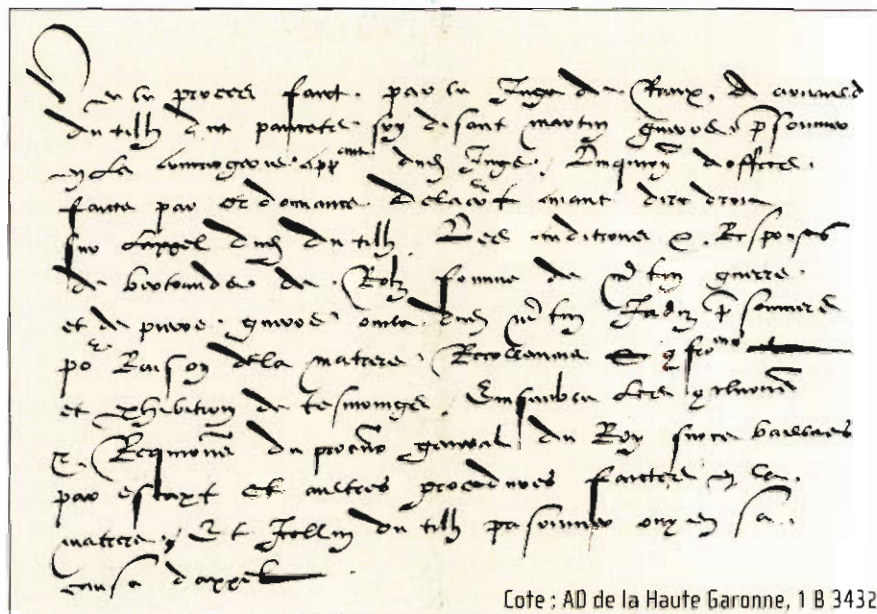 Veu le proces faict par le Juge de Rieux, A Arnauld
du tilh dit pancete soy disant martin guerre prisonnier
en la conciergerie appnt dud Juge, Enquise doffice
faicte par ordonnance de la court avant dire droict
sur lappel dud du tilh, Les auditions et Responses
de bertrande de Rolz femme de martin guerre
et de pierre guerre oncle dud martin Jadis prisonniers
por Raison de la matiere Recollement et confronnement
et exhibition de tesmoings, Ensemble les conclusions
et Requisitions du procureur general du Roy sur ce baillees
par escript et aultres procedures faictes en la
matiere, Et Icelluy du tilh prisonnier ouy en sa
cause dappel
Cote : AD de la Haute Garonne, 1 B 3432